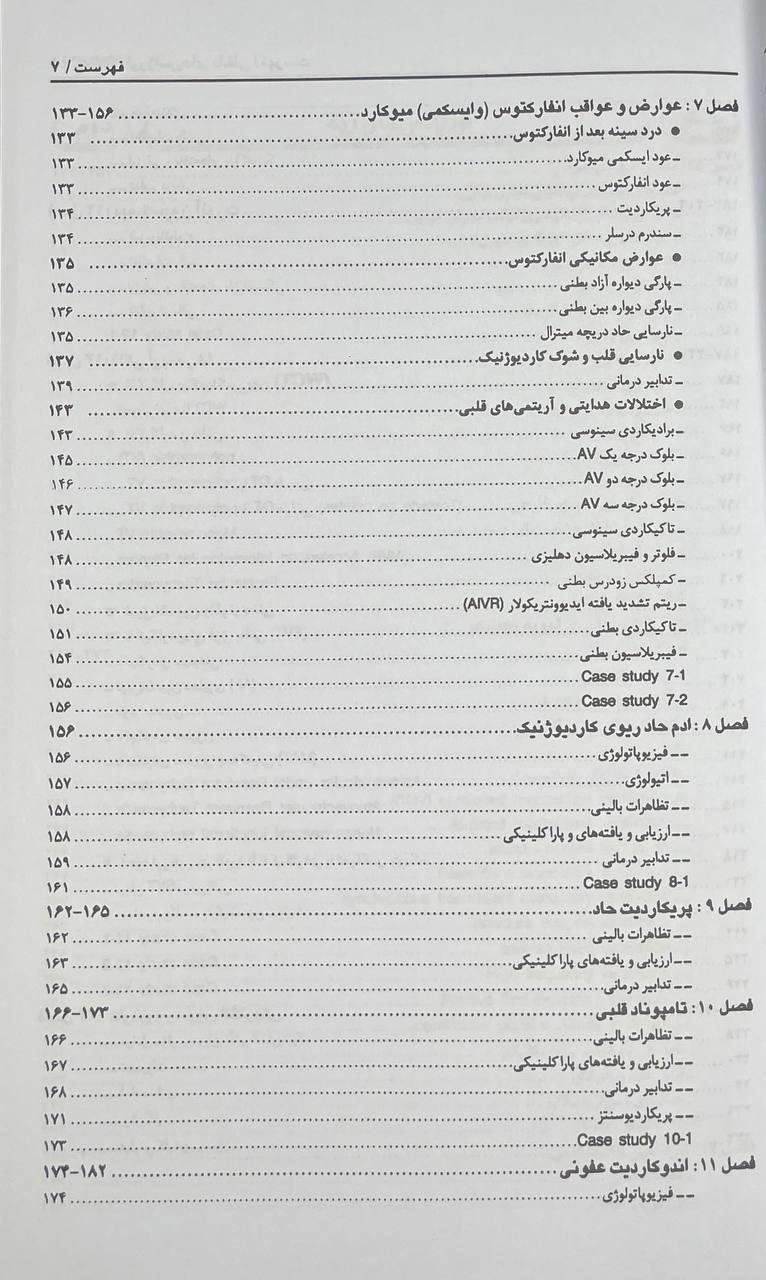 فهرست / ۷
فصل ۷ : عوارض و عواقب انفارکتوس (وایسکمی) میوکارد ۱۵۶-۱۳۳
● درد سینه بعد از انفارکتوس ۱۳۳
ـ عود ایسکمی میوکارد ۱۳۳
ـ عود انفارکتوس ۱۳۳
ـ پریکاردیت ۱۳۴
ـ سندرم درسلر ۱۳۴
● عوارض مکانیکی انفارکتوس ۱۳۵
ـ پارگی دیواره آزاد بطنی ۱۳۵
ـ پارگی دیواره بین بطنی ۱۳۶
ـ نارسایی حاد دریچه میترال ۱۳۵
● نارسایی قلب و شوک کاردیوژنیک ۱۳۷
ـ تدابیر درمانی ۱۳۹
● اختلالات هدایتی و آریتمی‌های قلبی ۱۴۳
ـ برادیکاردی سینوسی ۱۴۳
ـ بلوک درجه یک AV ۱۴۵
ـ بلوک درجه دو AV ۱۴۶
ـ بلوک درجه سه AV ۱۴۷
ـ تاکیکاردی سینوسی ۱۴۸
ـ فلوتر و فیبریلاسیون دهلیزی ۱۴۸
ـ کمپلکس زودرس بطنی ۱۴۹
ـ ریتم تشدید یافته ایدیوونتریکولار (AIVR) ۱۵۰
ـ تاکیکاردی بطنی ۱۵۱
ـ فیبریلاسیون بطنی ۱۵۴
Case study 7-1 ۱۵۵
Case study 7-2 ۱۵۶
فصل ۸ : ادم حاد ریوی کاردیوژنیک ۱۵۶
ــ فیزیوپاتولوژی ۱۵۶
ــ اتیولوژی ۱۵۷
ــ تظاهرات بالینی ۱۵۸
ــ ارزیابی و یافته‌های و پاراکلینیکی ۱۵۸
ــ تدابیر درمانی ۱۵۹
Case study 8-1 ۱۶۱
فصل ۹ : پریکاردیت حاد ۱۶۵-۱۶۲
ــ تظاهرات بالینی ۱۶۲
ــ ارزیابی و یافته‌های پاراکلینیکی ۱۶۳
ــ تدابیر درمانی ۱۶۵
فصل ۱۰ : تامپوناد قلبی ۱۷۳-۱۶۶
ــ تظاهرات بالینی ۱۶۶
ــ ارزیابی و یافته‌های پاراکلینیکی ۱۶۷
ــ تدابیر درمانی ۱۶۸
ــ پریکاردیوسنتز ۱۷۱
Case study 10-1 ۱۷۳
فصل ۱۱ : اندوکاردیت عفونی ۱۸۲-۱۷۴
ــ فیزیوپاتولوژی ۱۷۴